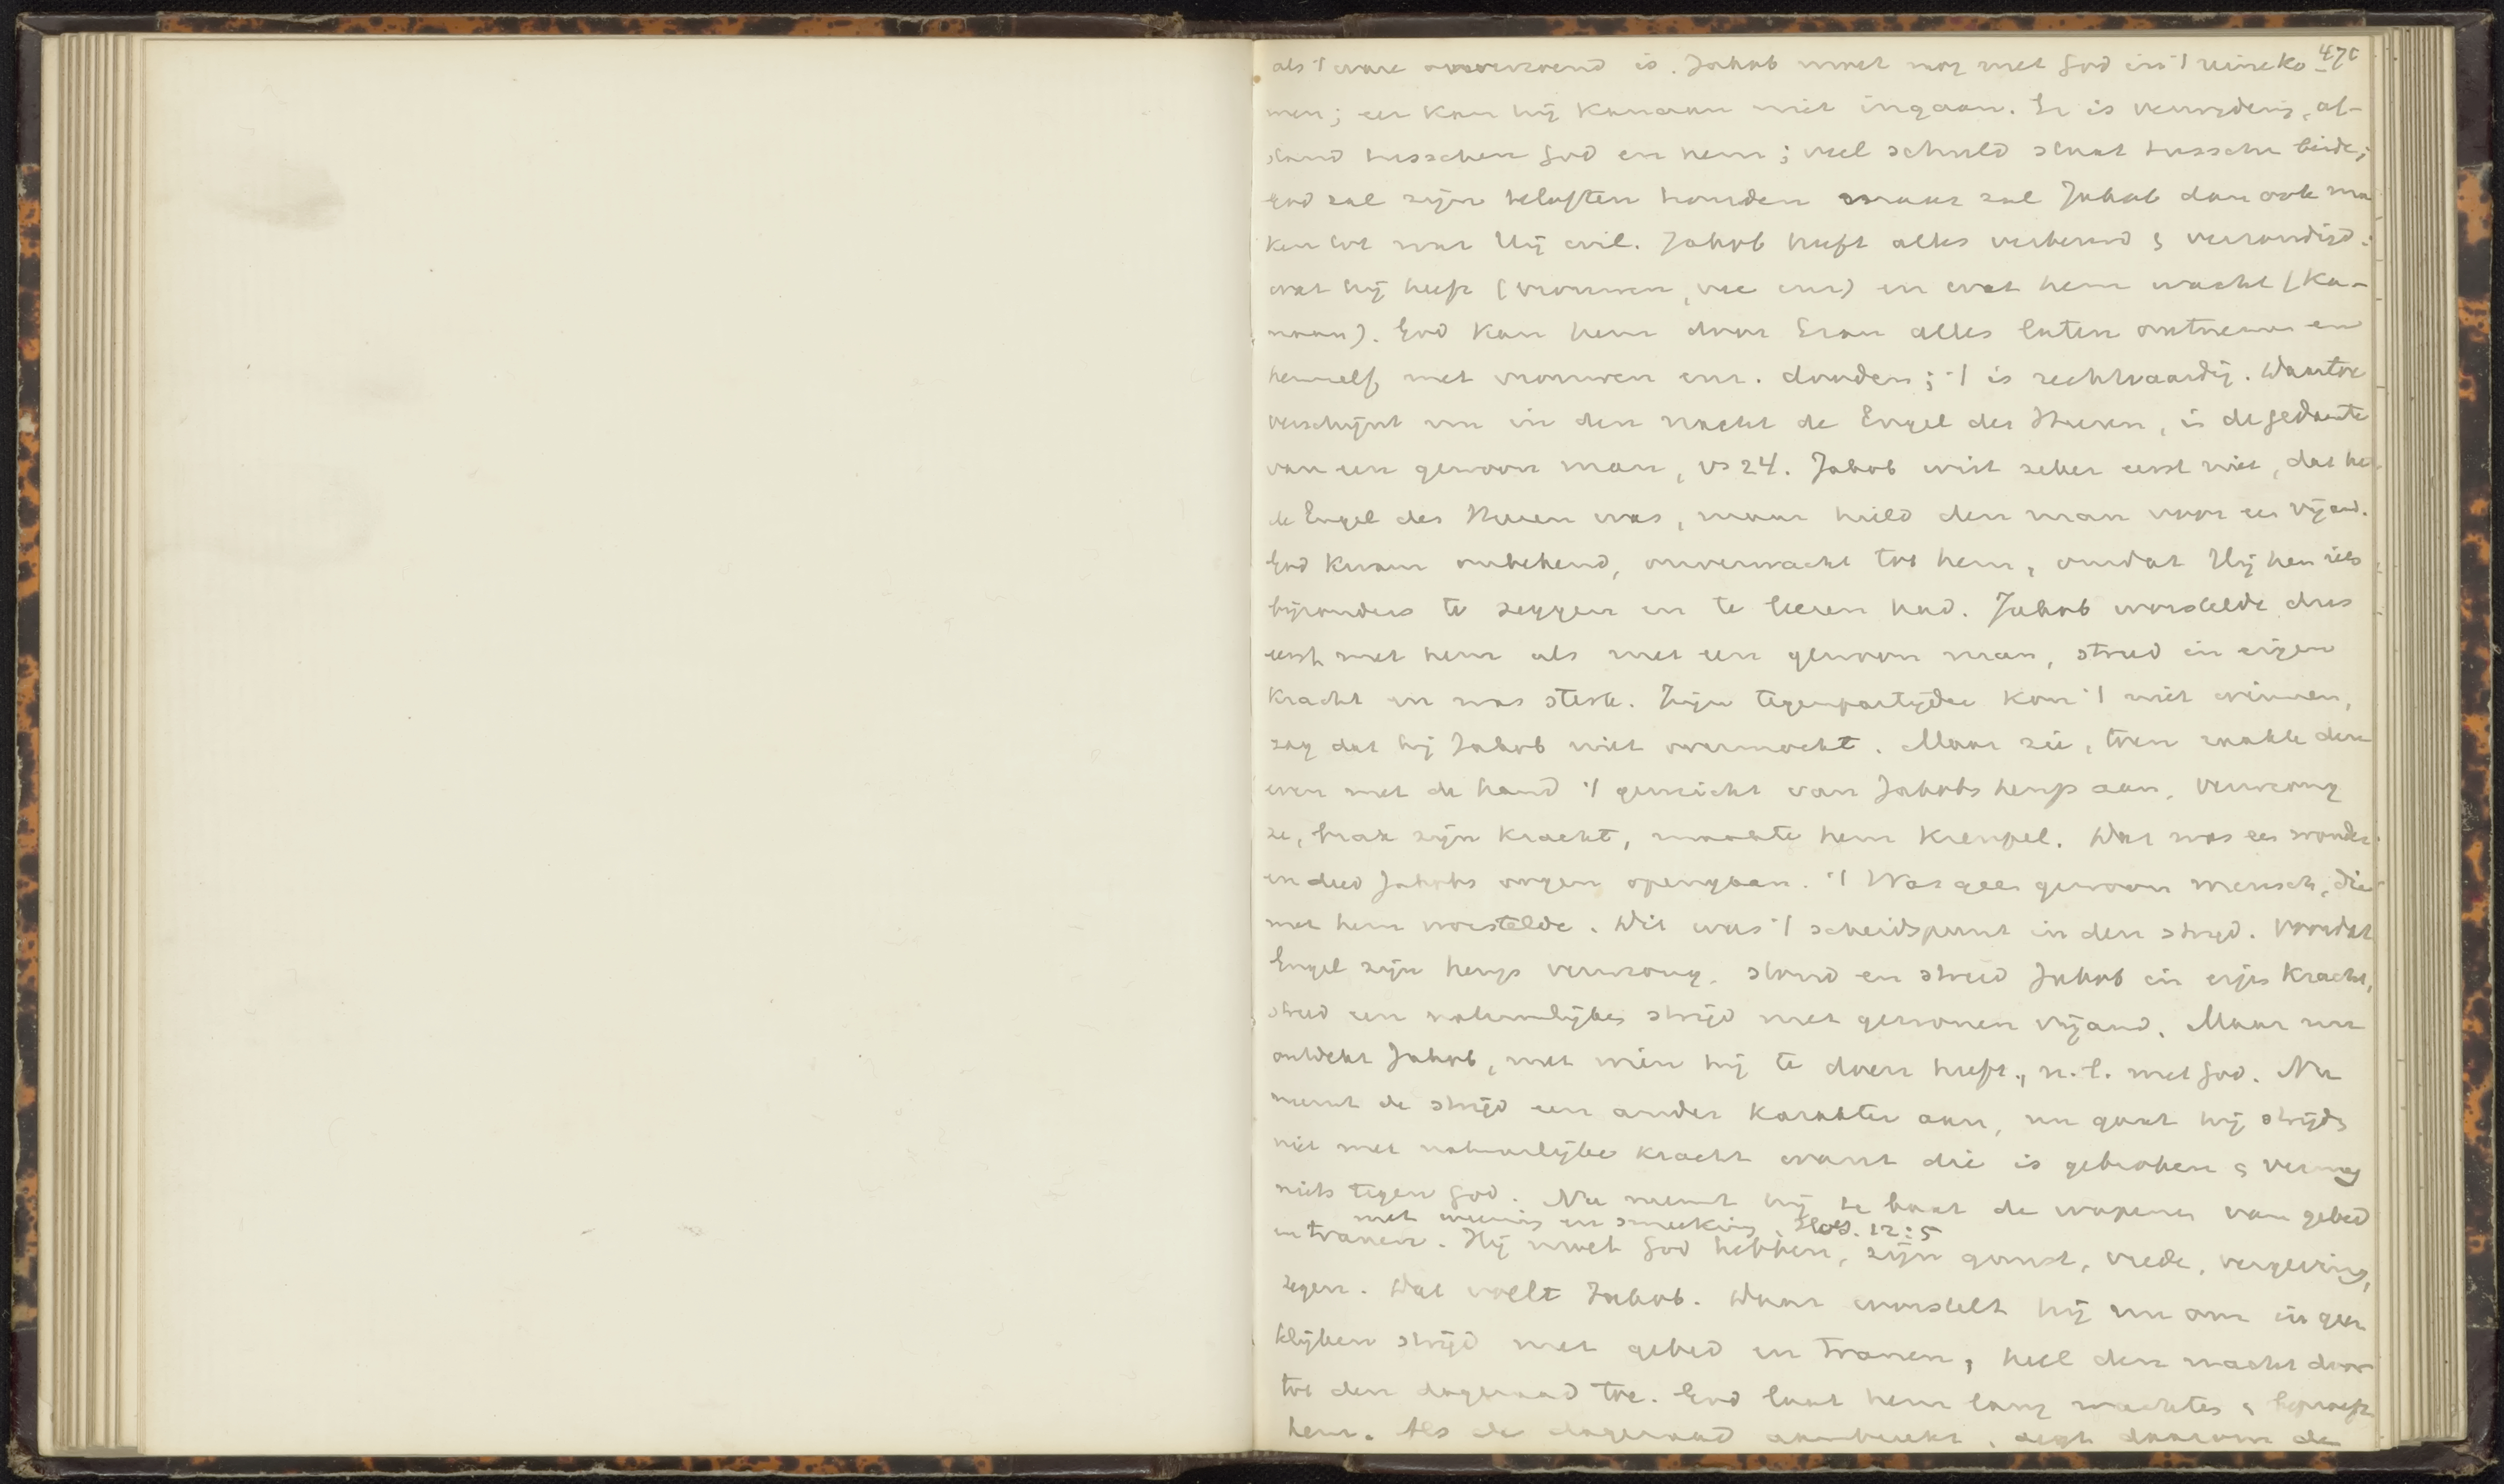 470
als 't ware overwinnend is. Jakob moet nog met God in 't reine ko-
men; eer kan hij Kanaan niet ingaan. Er is verwijdering, af-
stand tusschen God en hem; veel schuld staat tusschen beide;
God zal zijn beloften houden maar zal Jakob dan ook ma
ken tot wat Hij wil. Jakob heeft alles verbeurd & verzondigd:
wat hij heeft (vrouwen, vee enz) en wat hem wacht (Ka-
naan). God kan hem door Ezau alles laten ontnemen en
hemzelf met vrouwen enz. dooden; 't is rechtvaardig. Daartoe
verschijnt nu in den nacht de Engel des Heeren, in de gedaante
van een gewoon man, vs 24. Jakob wist zeker eerst niet, dat het
de Engel des Heeren was, maar hield den man voor een vijand.
God kwam onbekend, onverwacht tot hem, omdat Hij hem iets
bijzonders te zeggen en te leeren had. Jakob worstelde dus
eerst met hem als met een gewoon man, streed in eigen
kracht en was sterk. Zijn tegenpartijder kon 't niet winnen,
zag dat hij Jakob niet overmocht. Maar zie, toen raakte deze
even met de hand 't gewricht van Jakobs heup aan, verwrong
ze, brak zijn kracht, maakte hem kreupel. Dat was een wonder
en deed Jakobs oogen opengaan. 't Was geen gewoon mensch, die
met hem worstelde. Dit was 't scheidspunt in den strijd. Voordat
Engel zijn heup verwrong, stond en streed Jakob in eigen kracht,
streed een natuurlijken strijd met gewonen vijand. Maar nu
ontdekt Jakob, met wien hij te doen heeft, n.l. met God. Nu
neemt de strijd een ander karakter aan, nu gaat hij strijden
niet met natuurlijke kracht want die is gebroken & vermag
niets tegen God. Nu neemt hij te baat de wapenen van gebed
met weenen en smeeking, Hos. 12:5
en tranen. Hij moet God hebben, zijn gunst, vrede, vergeving,
zegen. Dat voelt Jakob. Daar worstelt hij nu om in gees
telijken strijd met gebed en tranen, heel den nacht door
tot den dageraad toe. God laat hem lang wachten & beproeft
hem. Als de dageraad aanbreekt, zegt daarom de